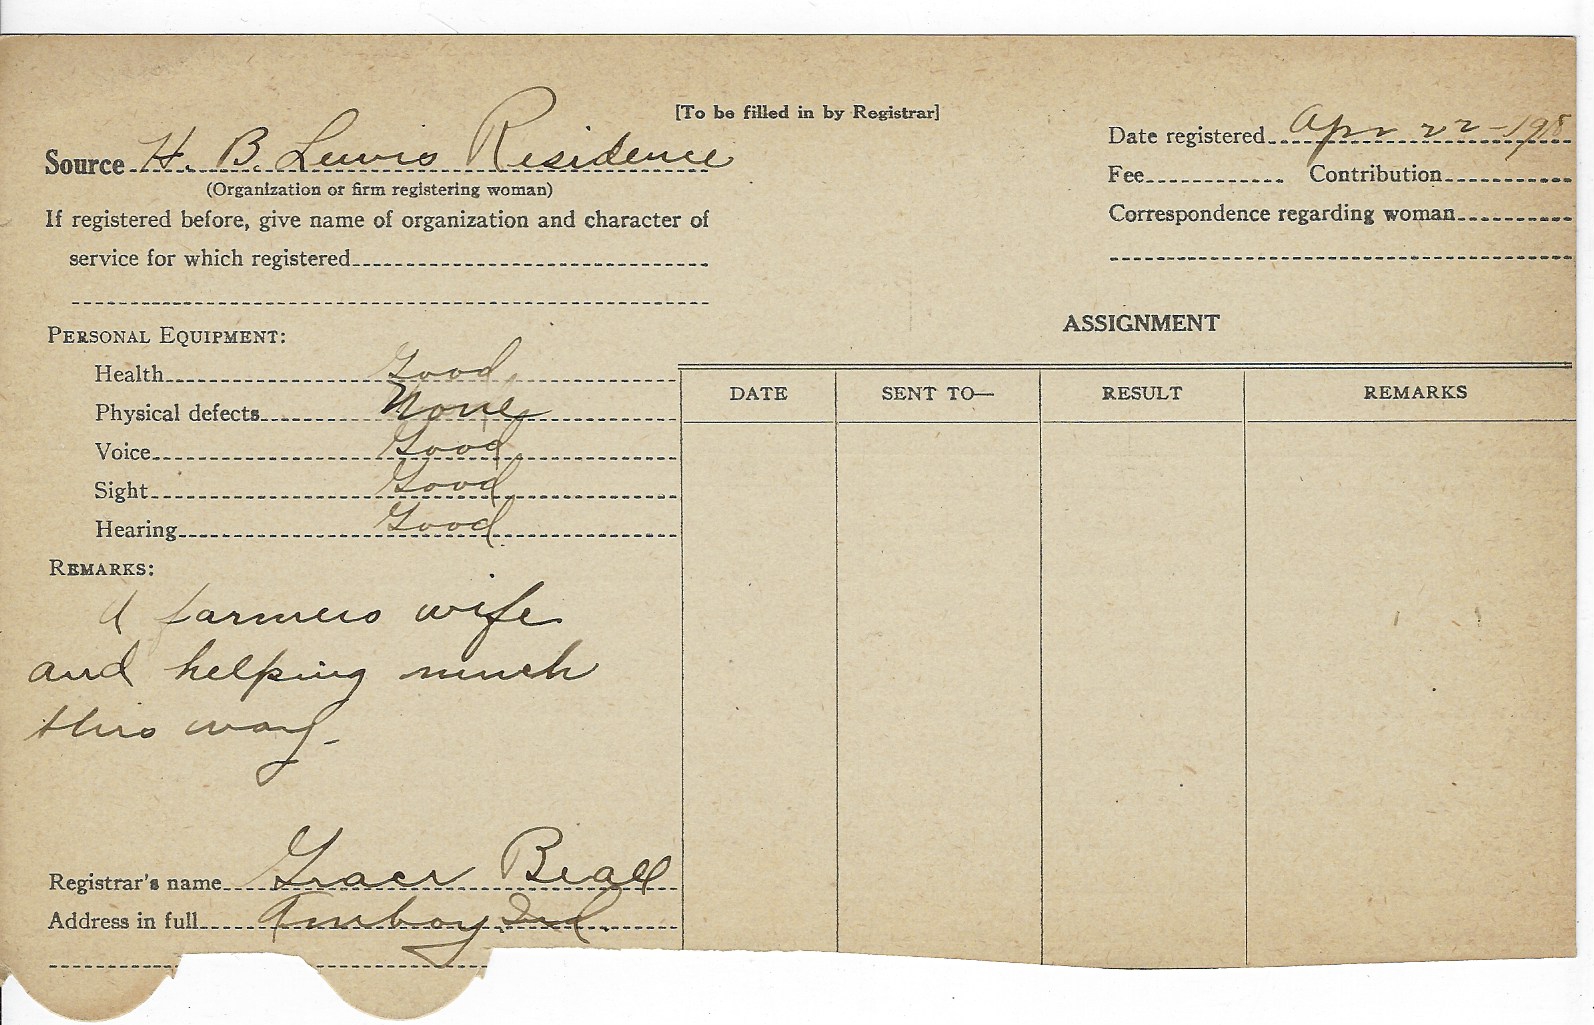 [To be filled in by Registrar]
Source H. B. Lewis Residence
(Organization or firm registering woman)
If registered before, give name of organization and character of
service for which registered
Date registered Apr 22-1918
Fee Contribution
Correspondence regarding woman
PERSONAL EQUIPMENT:
Health Good
Physical defects None
Voice Good
Sight Good
Hearing Good
REMARKS:
A farmers wife
and helping much
this way.
Registrar's name Grace Beall
Address in full Amboy Ind.
ASSIGNMENT
DATE SENT TO— RESULT REMARKS